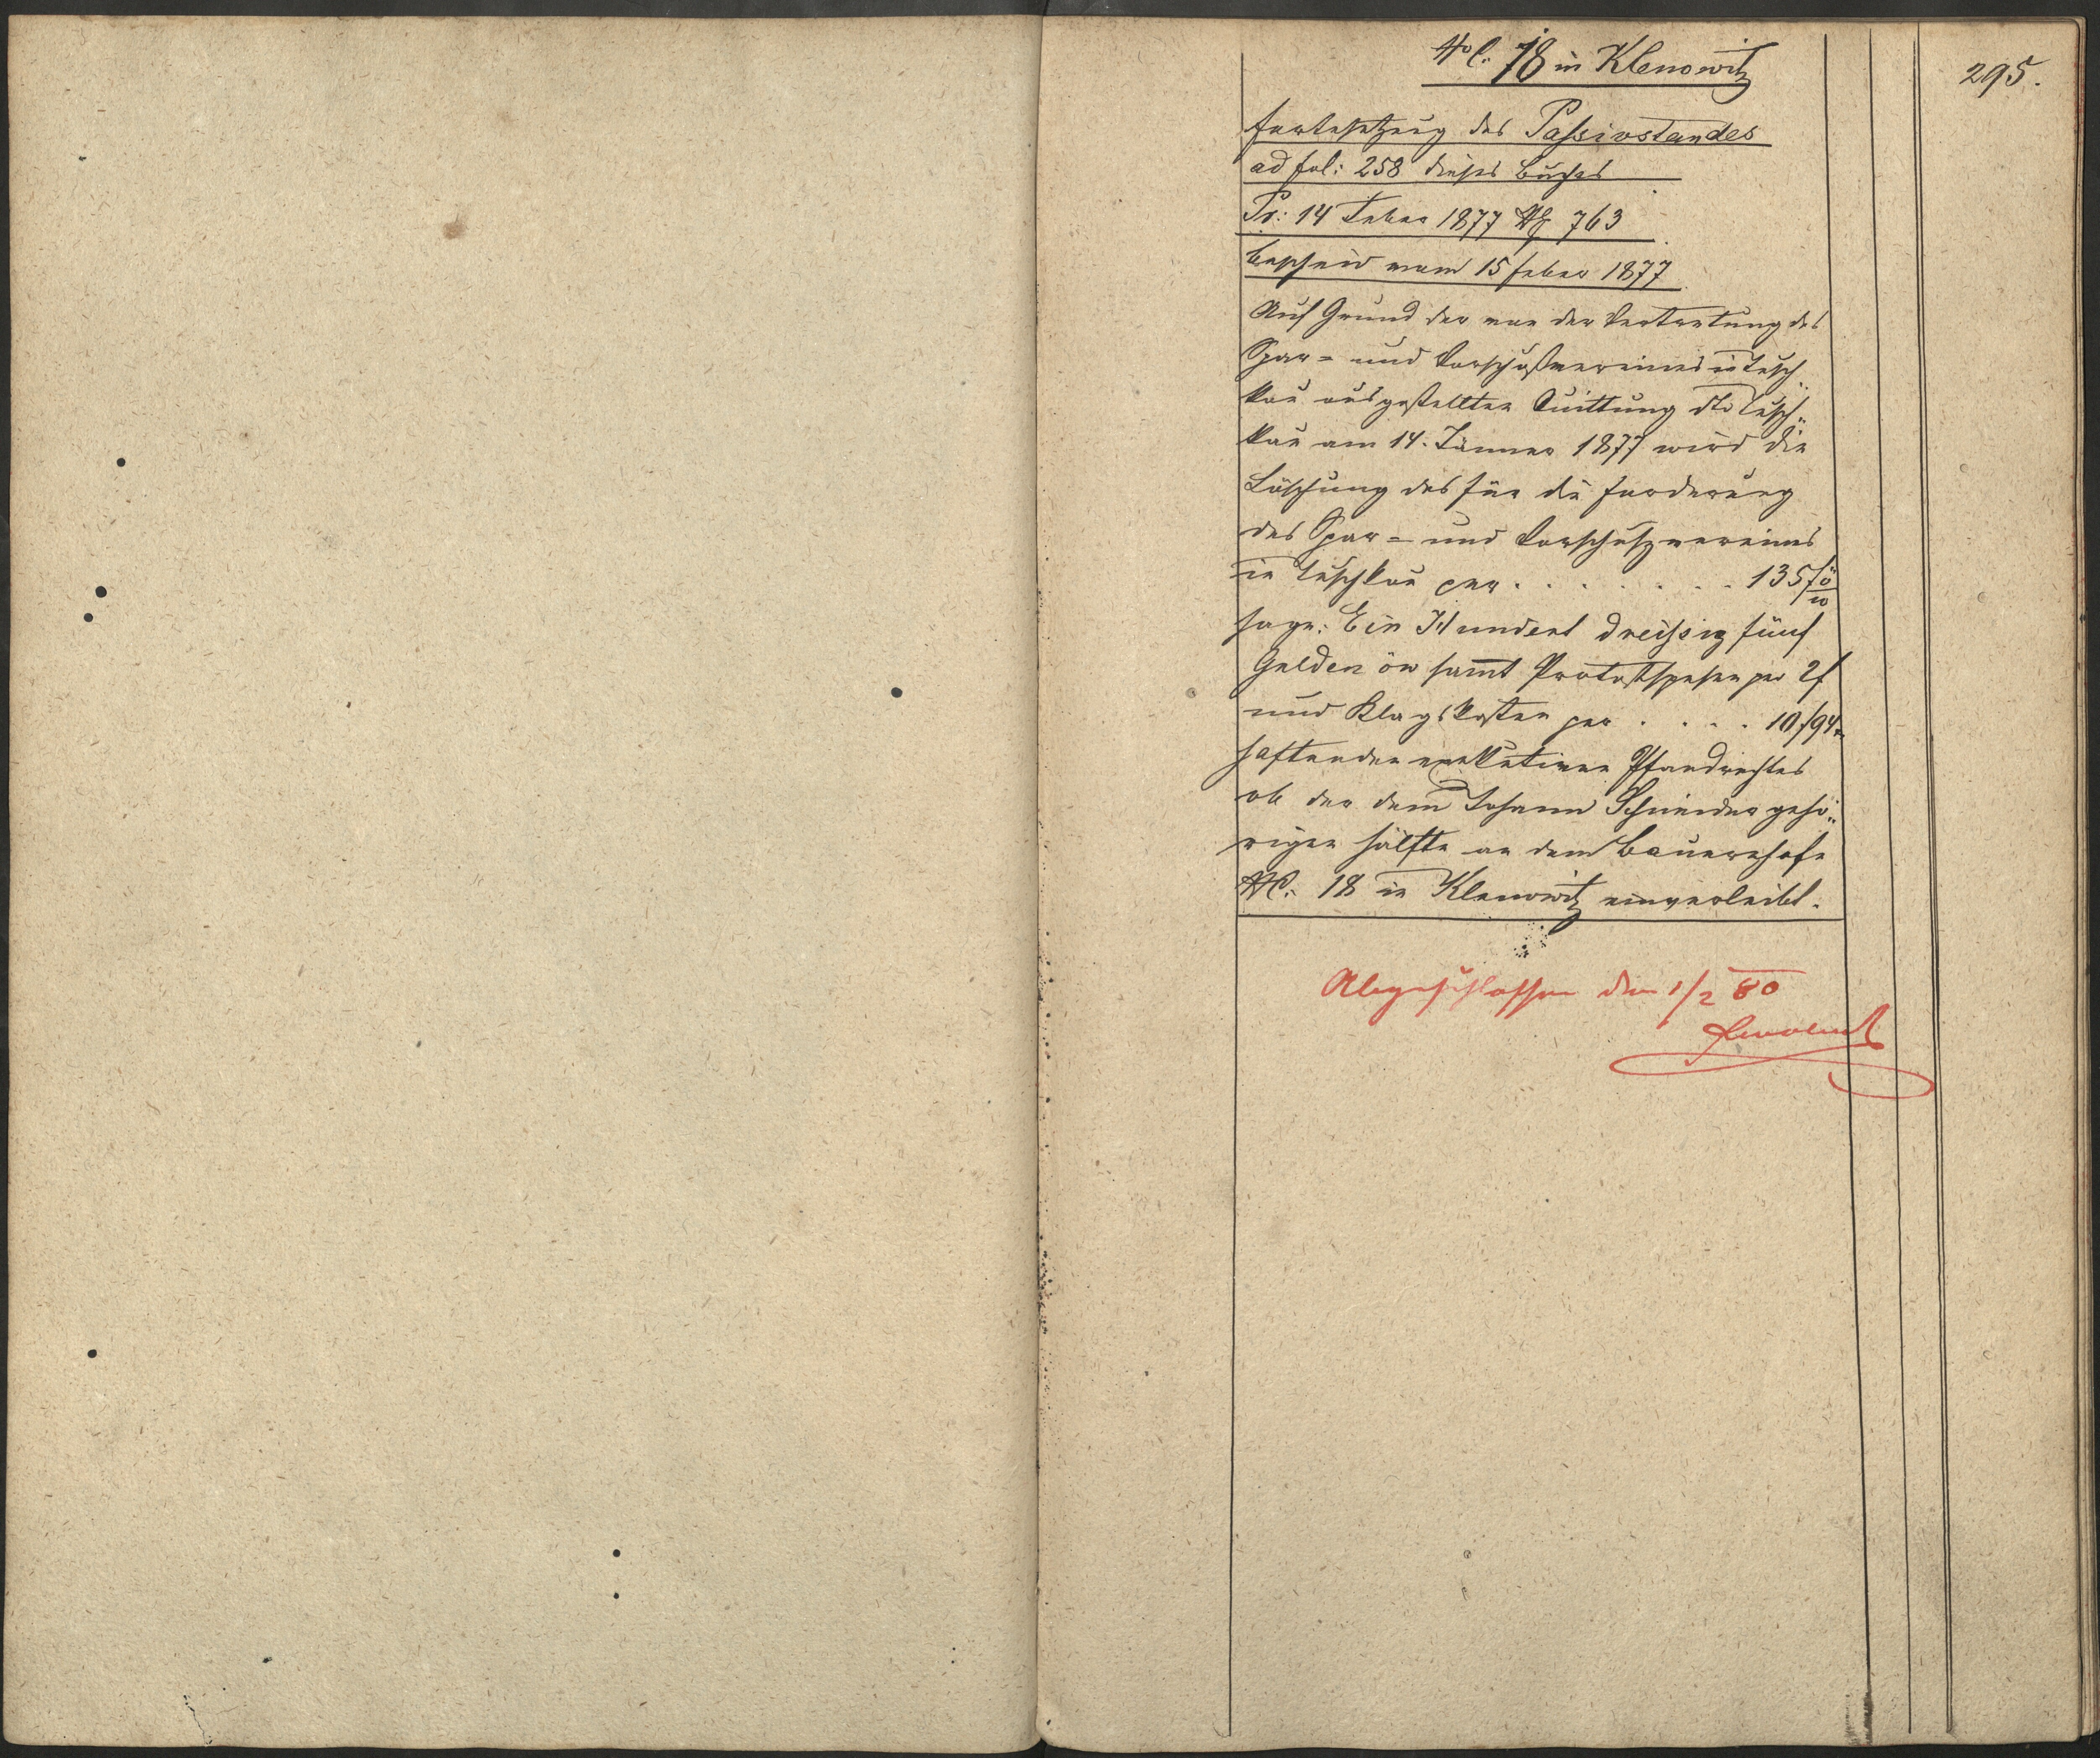 295.
No C. 18 in Klenowitz
Fortsetzung des Passivstandes
ad fol: 258 dieses Buches
Pr: 14 Feber 1877 No 763
Bescheid vom 15 Feber 1877
Auf Grund der von der Vertretung des
Spar- und Vorschußvereines in Tusch
kau ausgestellten Quittung dto Tusch„
kau am 14. Jänner 1877 wird die
Löschung des für die Forderung
des Spar- und Vorschußvereines
in Tuschkau per . . . . . . . 135 f ö w
sage: Ein Hundert dreißig fünf
Gulden öw sammt Protestspesen per 2 f
und Klagskosten per . . . . 10 f 94
haftenden exekutiven Pfandrechtes
ob der dem Johann Schneider gehö„
rigen Hälfte an dem Bauernhofe
NC. 18 in Klenowitz einverleibt.
Abgeschlossen den 1/2 80